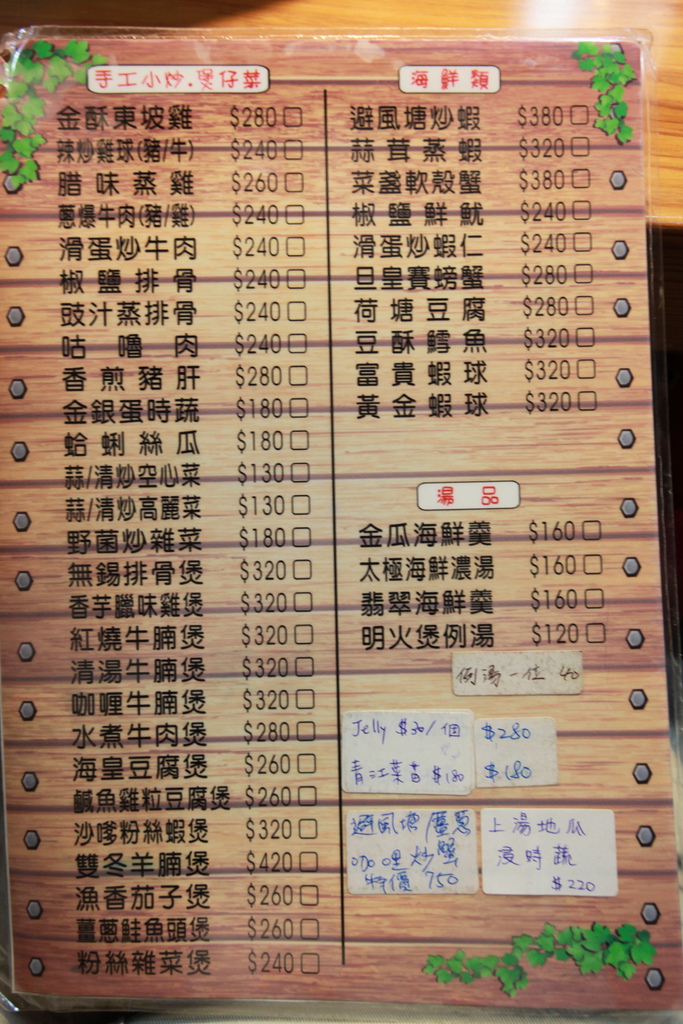 手工小炒.煲仔菜
金酥東坡雞 $280
辣炒雞球(豬/牛) $240
腊味蒸雞 $260
蔥爆牛肉(豬/雞) $240
滑蛋炒牛肉 $240
椒鹽排骨 $240
豉汁蒸排骨 $240
咕嚕肉 $240
香煎豬肝 $280
金銀蛋時蔬 $180
蛤蜊絲瓜 $180
蒜/清炒空心菜 $130
蒜/清炒高麗菜 $130
野菌炒雜菜 $180
無錫排骨煲 $320
香芋臘味雞煲 $320
紅燒牛腩煲 $320
清湯牛腩煲 $320
咖喱牛腩煲 $320
水煮牛肉煲 $280
海皇豆腐煲 $260
鹹魚雞粒豆腐煲 $260
沙嗲粉絲蝦煲 $320
雙冬羊腩煲 $420
漁香茄子煲 $260
薑蔥鮭魚頭煲 $260
粉絲雜菜煲 $240
海鮮類
避風塘炒蝦 $380
蒜茸蒸蝦 $320
菜盞軟殼蟹 $380
椒鹽鮮魷 $240
滑蛋炒蝦仁 $240
旦皇賽螃蟹 $280
荷塘豆腐 $280
豆酥鱈魚 $320
富貴蝦球 $320
黃金蝦球 $320
湯品
金瓜海鮮羹 $160
太極海鮮濃湯 $160
翡翠海鮮羹 $160
明火煲例湯 $120
例湯一位 40
Jelly $30/個
青江菜苗 $180
$280
$180
避風塘/薑蔥
咖哩炒蟹
特價 750
上湯地瓜
浸時蔬
$220